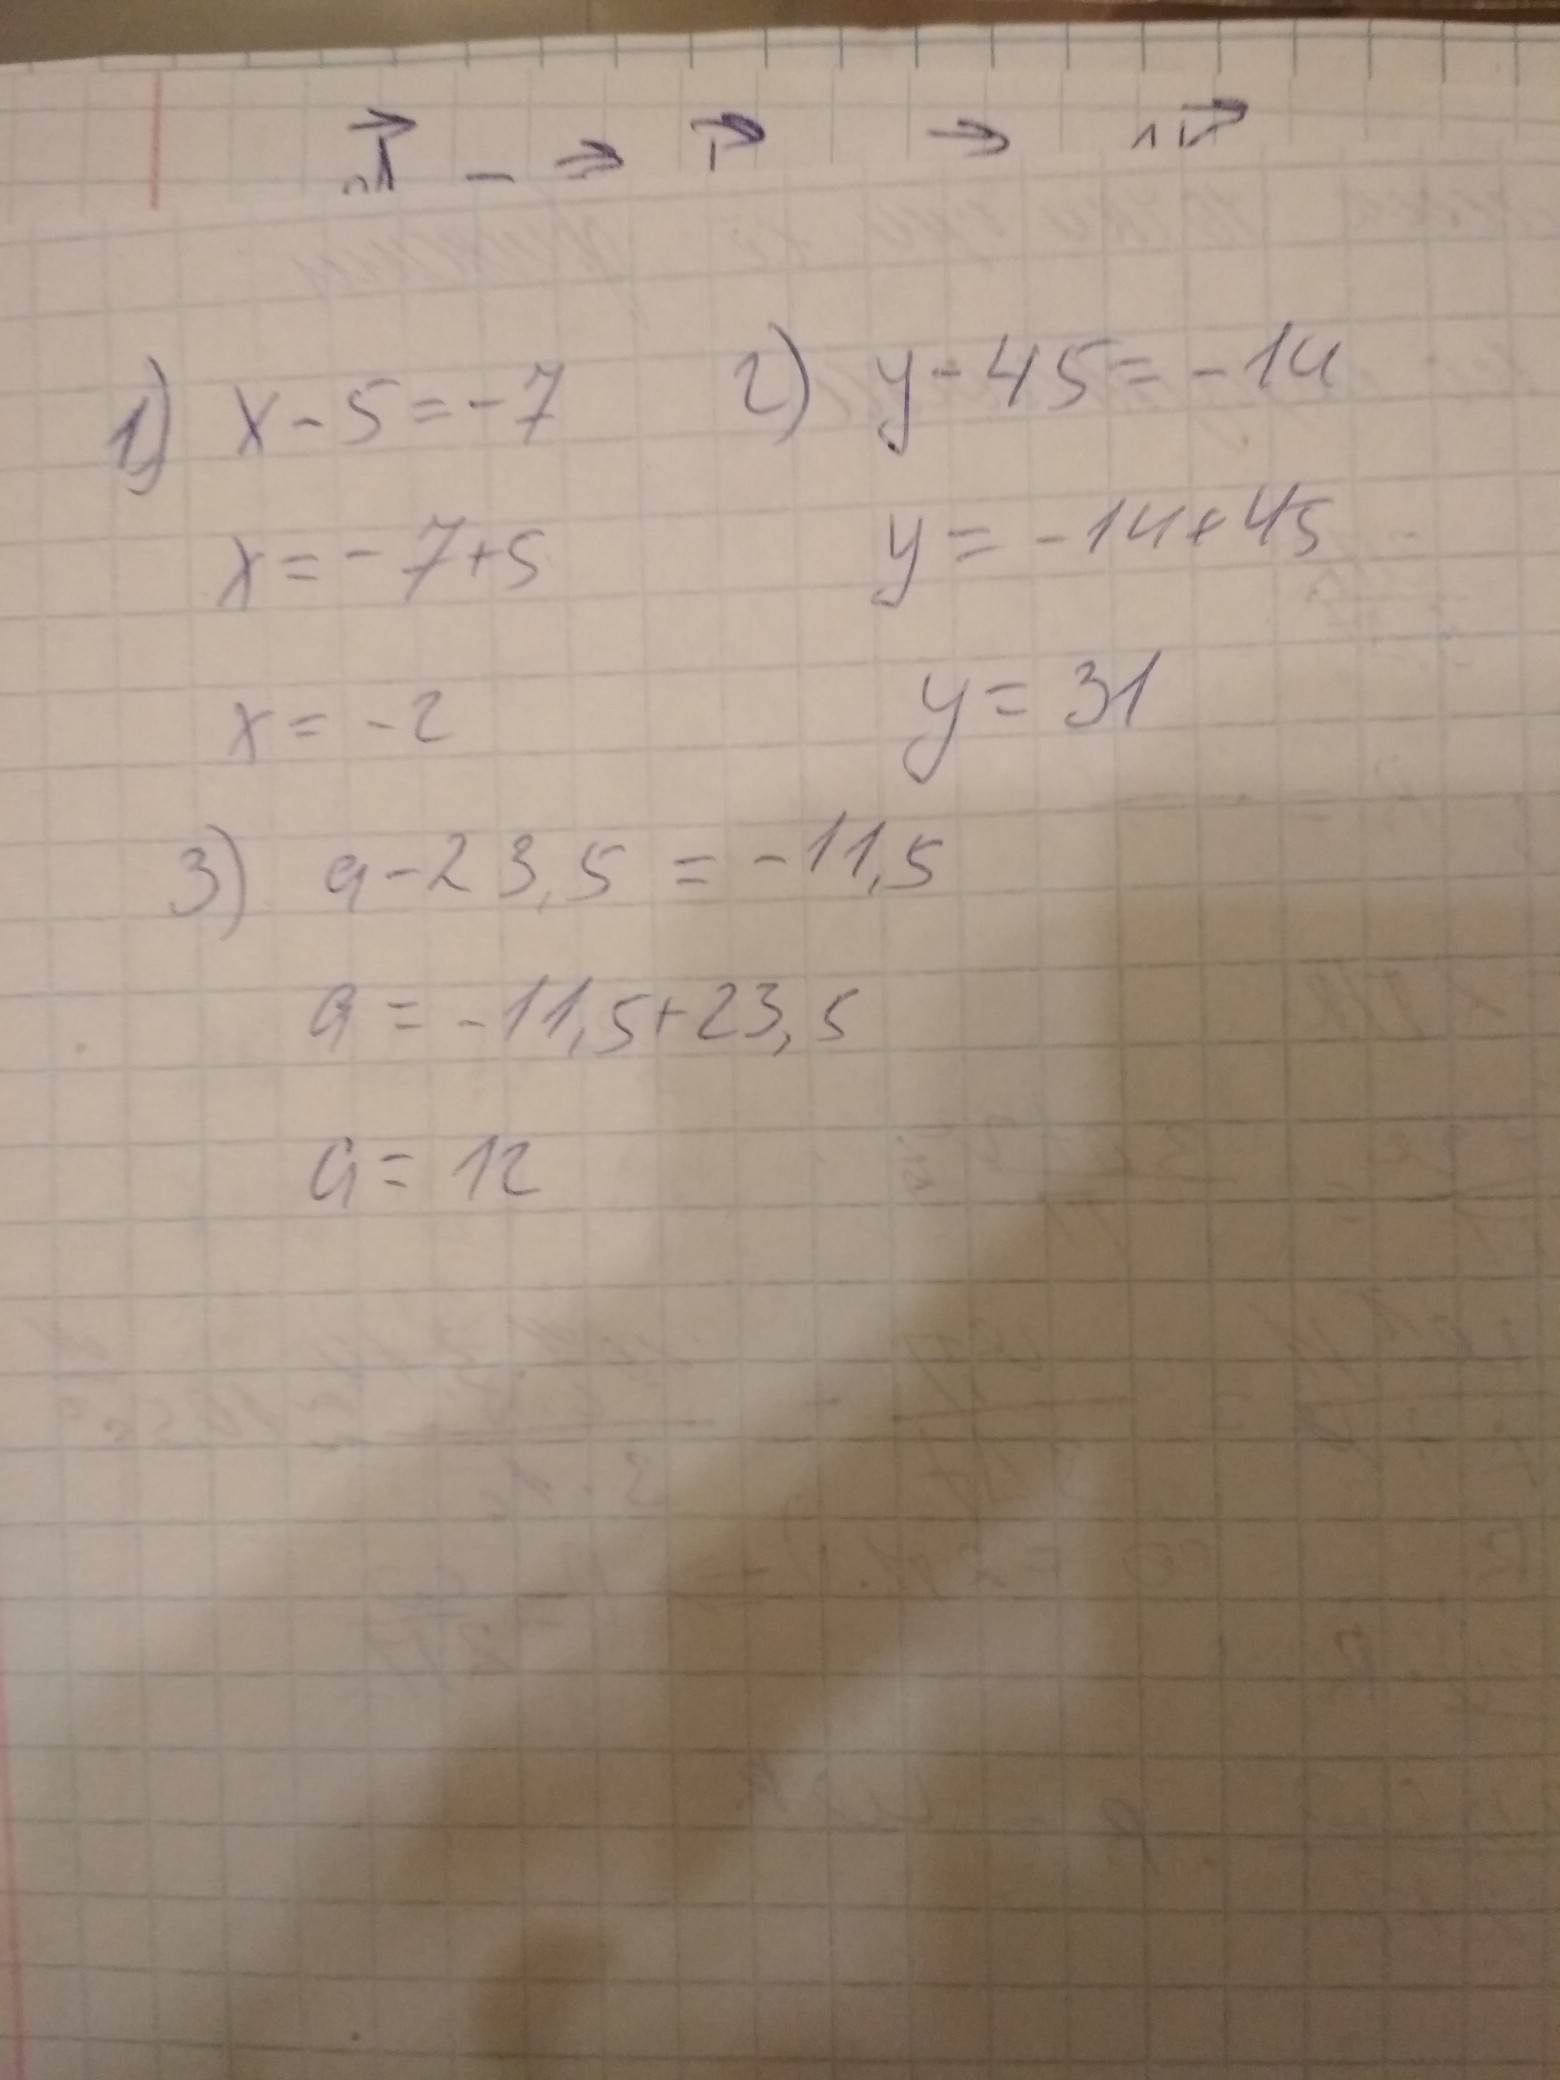 1) x - 5 = - 7
x = - 7 + 5
x = - 2
2) y - 45 = - 14
y = - 14 + 45
y = 31
3) a - 23,5 = - 11,5
a = - 11,5 + 23,5
a = 12